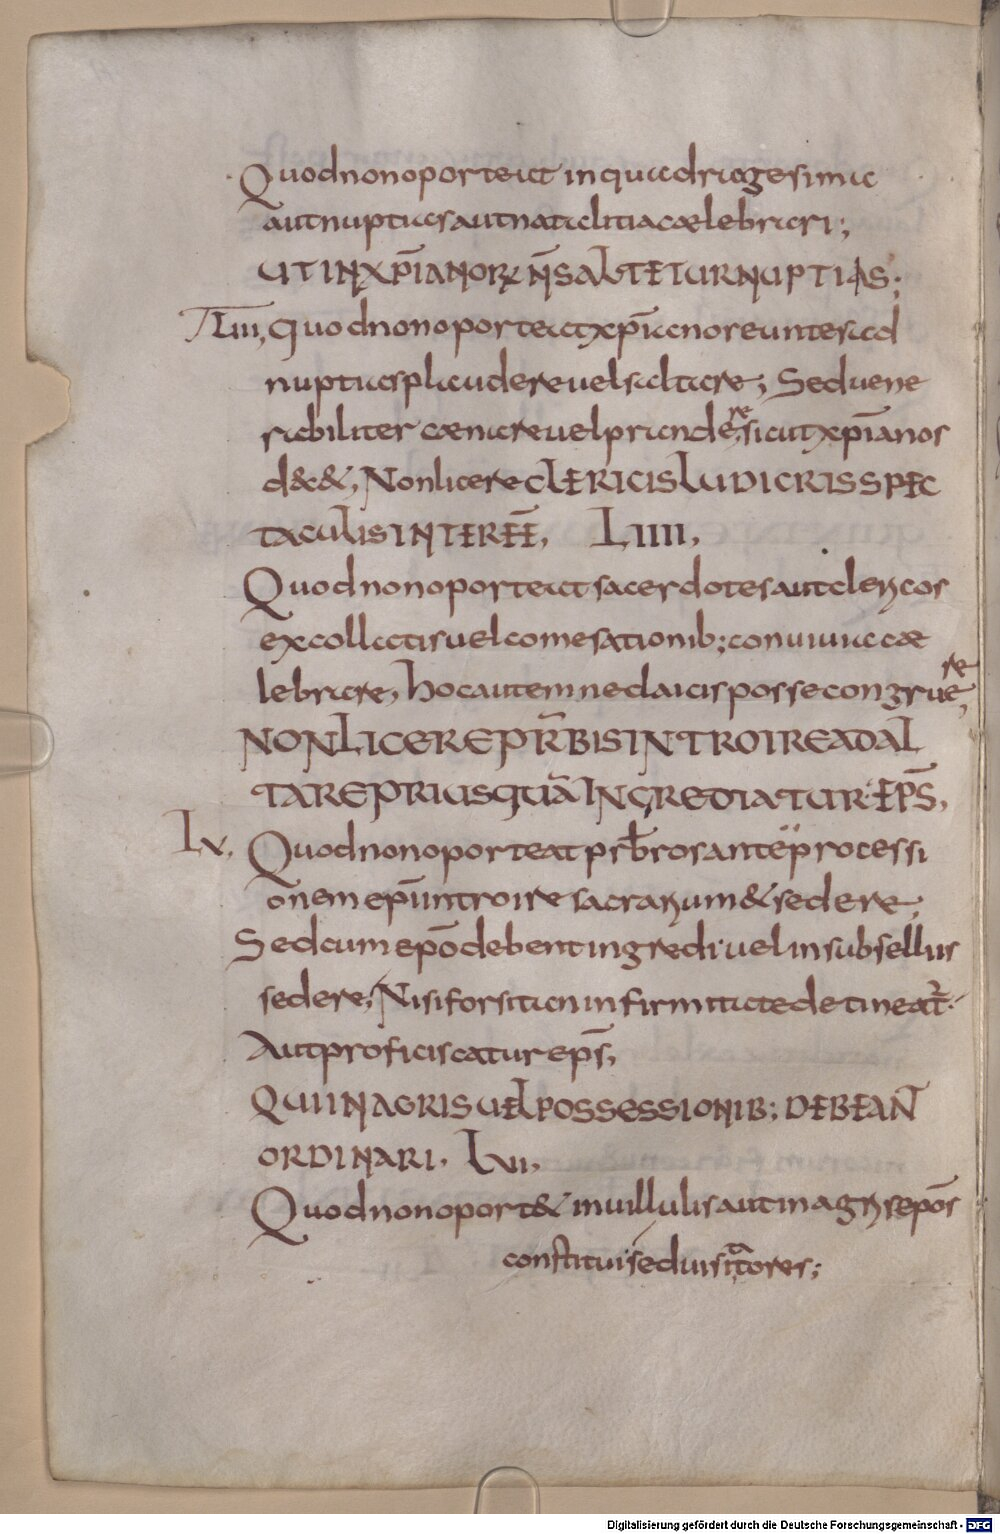 Quod non oporteat in quadragesima
aut nuptias aut natalitia caelebrari;
UT IN XP̄IANORꝜ N̄ SALTETUR NUPTIAS;
LIII, Quod non oporteat xp̄ianore untes ad
nuptias plaudere vel saltare; Sed uene
rabiliter caenare uel prandere, sicut xp̄ianos
dec&, Non licere CLERICIS LUDICRIS SPEC
TACULIS INTEREE͞, LIIII,
Quod non oporteat sacerdotes aut clericos
ex collectis uel comesationib; conuiuia cae
lebrare, hoc autem nec laicis posse congruere,
NON LICERE PR̄BIS INTROIRE AD AL
TARE PRIUSQUĀ INGREDIATUR EPS̄,
LV, Quod non oporteat pr̄bros ante processi
onem ep̄i introire sacrarium & sedere,
Sed cum ep̄o debent ingredi uel in subselliis
sedere, Nisi forsitan infirmitate detineat̄.
Aut proficiscatur eps̄,
QUI IN AGRIS UEL POSSESSIONIB; DEBEANT
ORDINARI, LVI,
Quod non oport& in uillulis aut in agris epōs
constitui sed uisitatores;
Digitalisierung gefördert durch die Deutsche Forschungsgemeinschaft - DFG